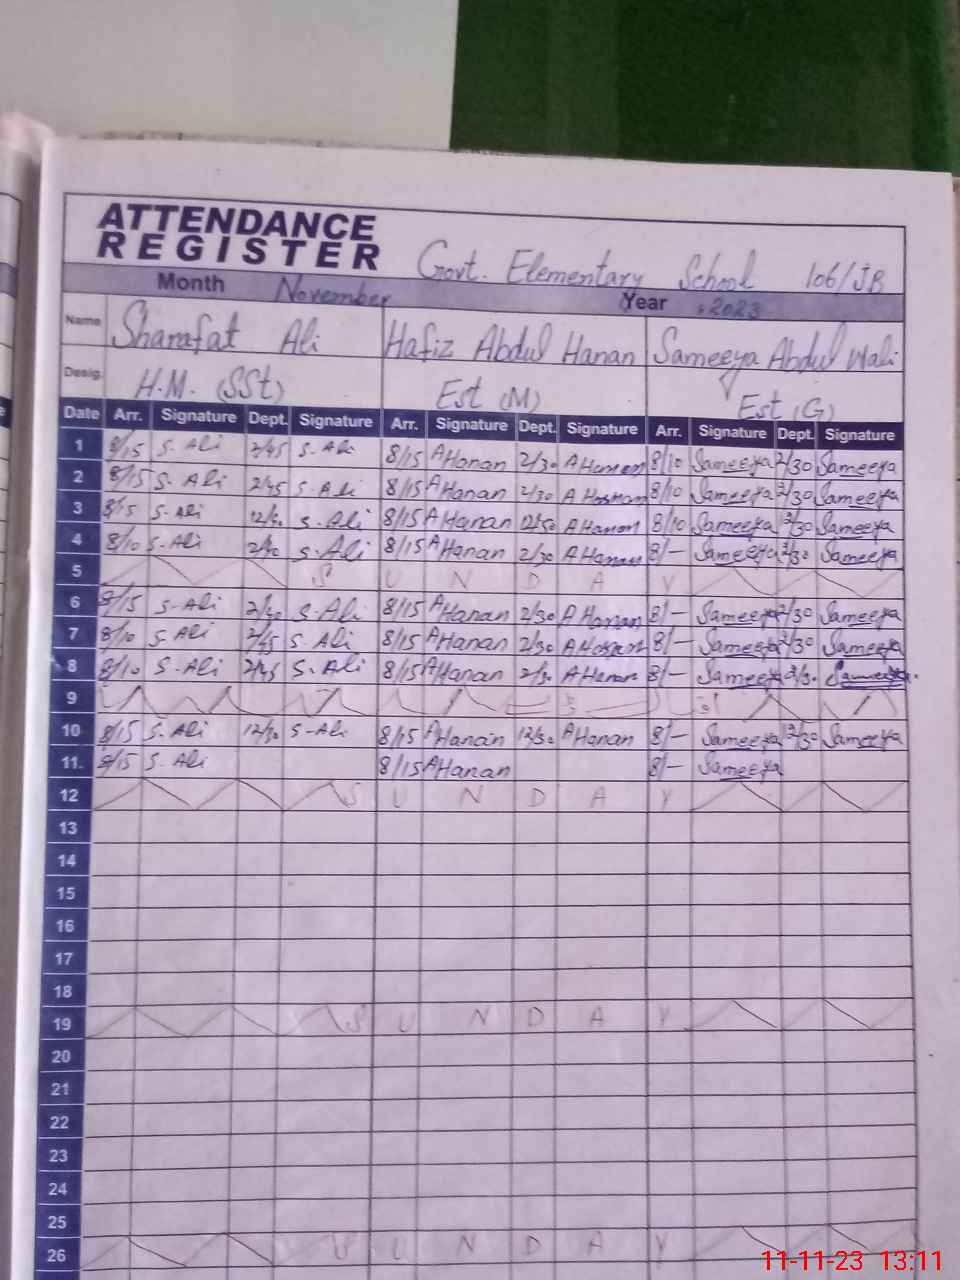 ATTENDANCE
REGISTER Govt. Elementary School 106/JB
Month November Year 2023
Name Sharafat Ali Hafiz Abdul Hanan Sameeya Abdul Wali
Desig. H.M. (SSt) Est (M) Est (G)
Date Arr. Signature Dept. Signature Arr. Signature Dept. Signature Arr. Signature Dept. Signature
1 8/15 S. Ali 2/45 S. Ali 8/15 AHanan 2/30 AHanan 8/10 Sameeya 2/30 Sameeya
2 8/15 S. Ali 2/45 S. Ali 8/15 AHanan 2/30 8/10 Sameeya 2/30 Sameeya
3 8/15 S. Ali S. Ali 8/15 AHanan 12/30 AHanan 8/10 Sameeya Sameeya
4 8/10 S. Ali S. Ali 8/15 AHanan 2/30 AHanan 8/- Sameeya 2/30 Sameeya
5 S U N D A Y
6 8/15 S. Ali S. Ali 8/15 AHanan 2/30 AHanan 8/- Sameeya 2/30 Sameeya
7 8/10 S. Ali 2/45 S. Ali 8/15 AHanan 2/30 8/- Sameeya 2/30 Sameeya
8 8/10 S. Ali 2/45 S. Ali 8/15 AHanan 2/30 AHanan 8/- Sameeya Sameeya
9
10 8/15 S. Ali 12/30 S-Ali 8/15 AHanan 12/30 AHanan 8/- Sameeya 12/30 Sameeya
11. 8/15 S. Ali 8/15 AHanan 8/- Sameeya
12 S U N D A Y
13
14
15
16
17
18
19 S U N D A Y
20
21
22
23
24
25
26 S U N D A Y
11-11-23 13:11